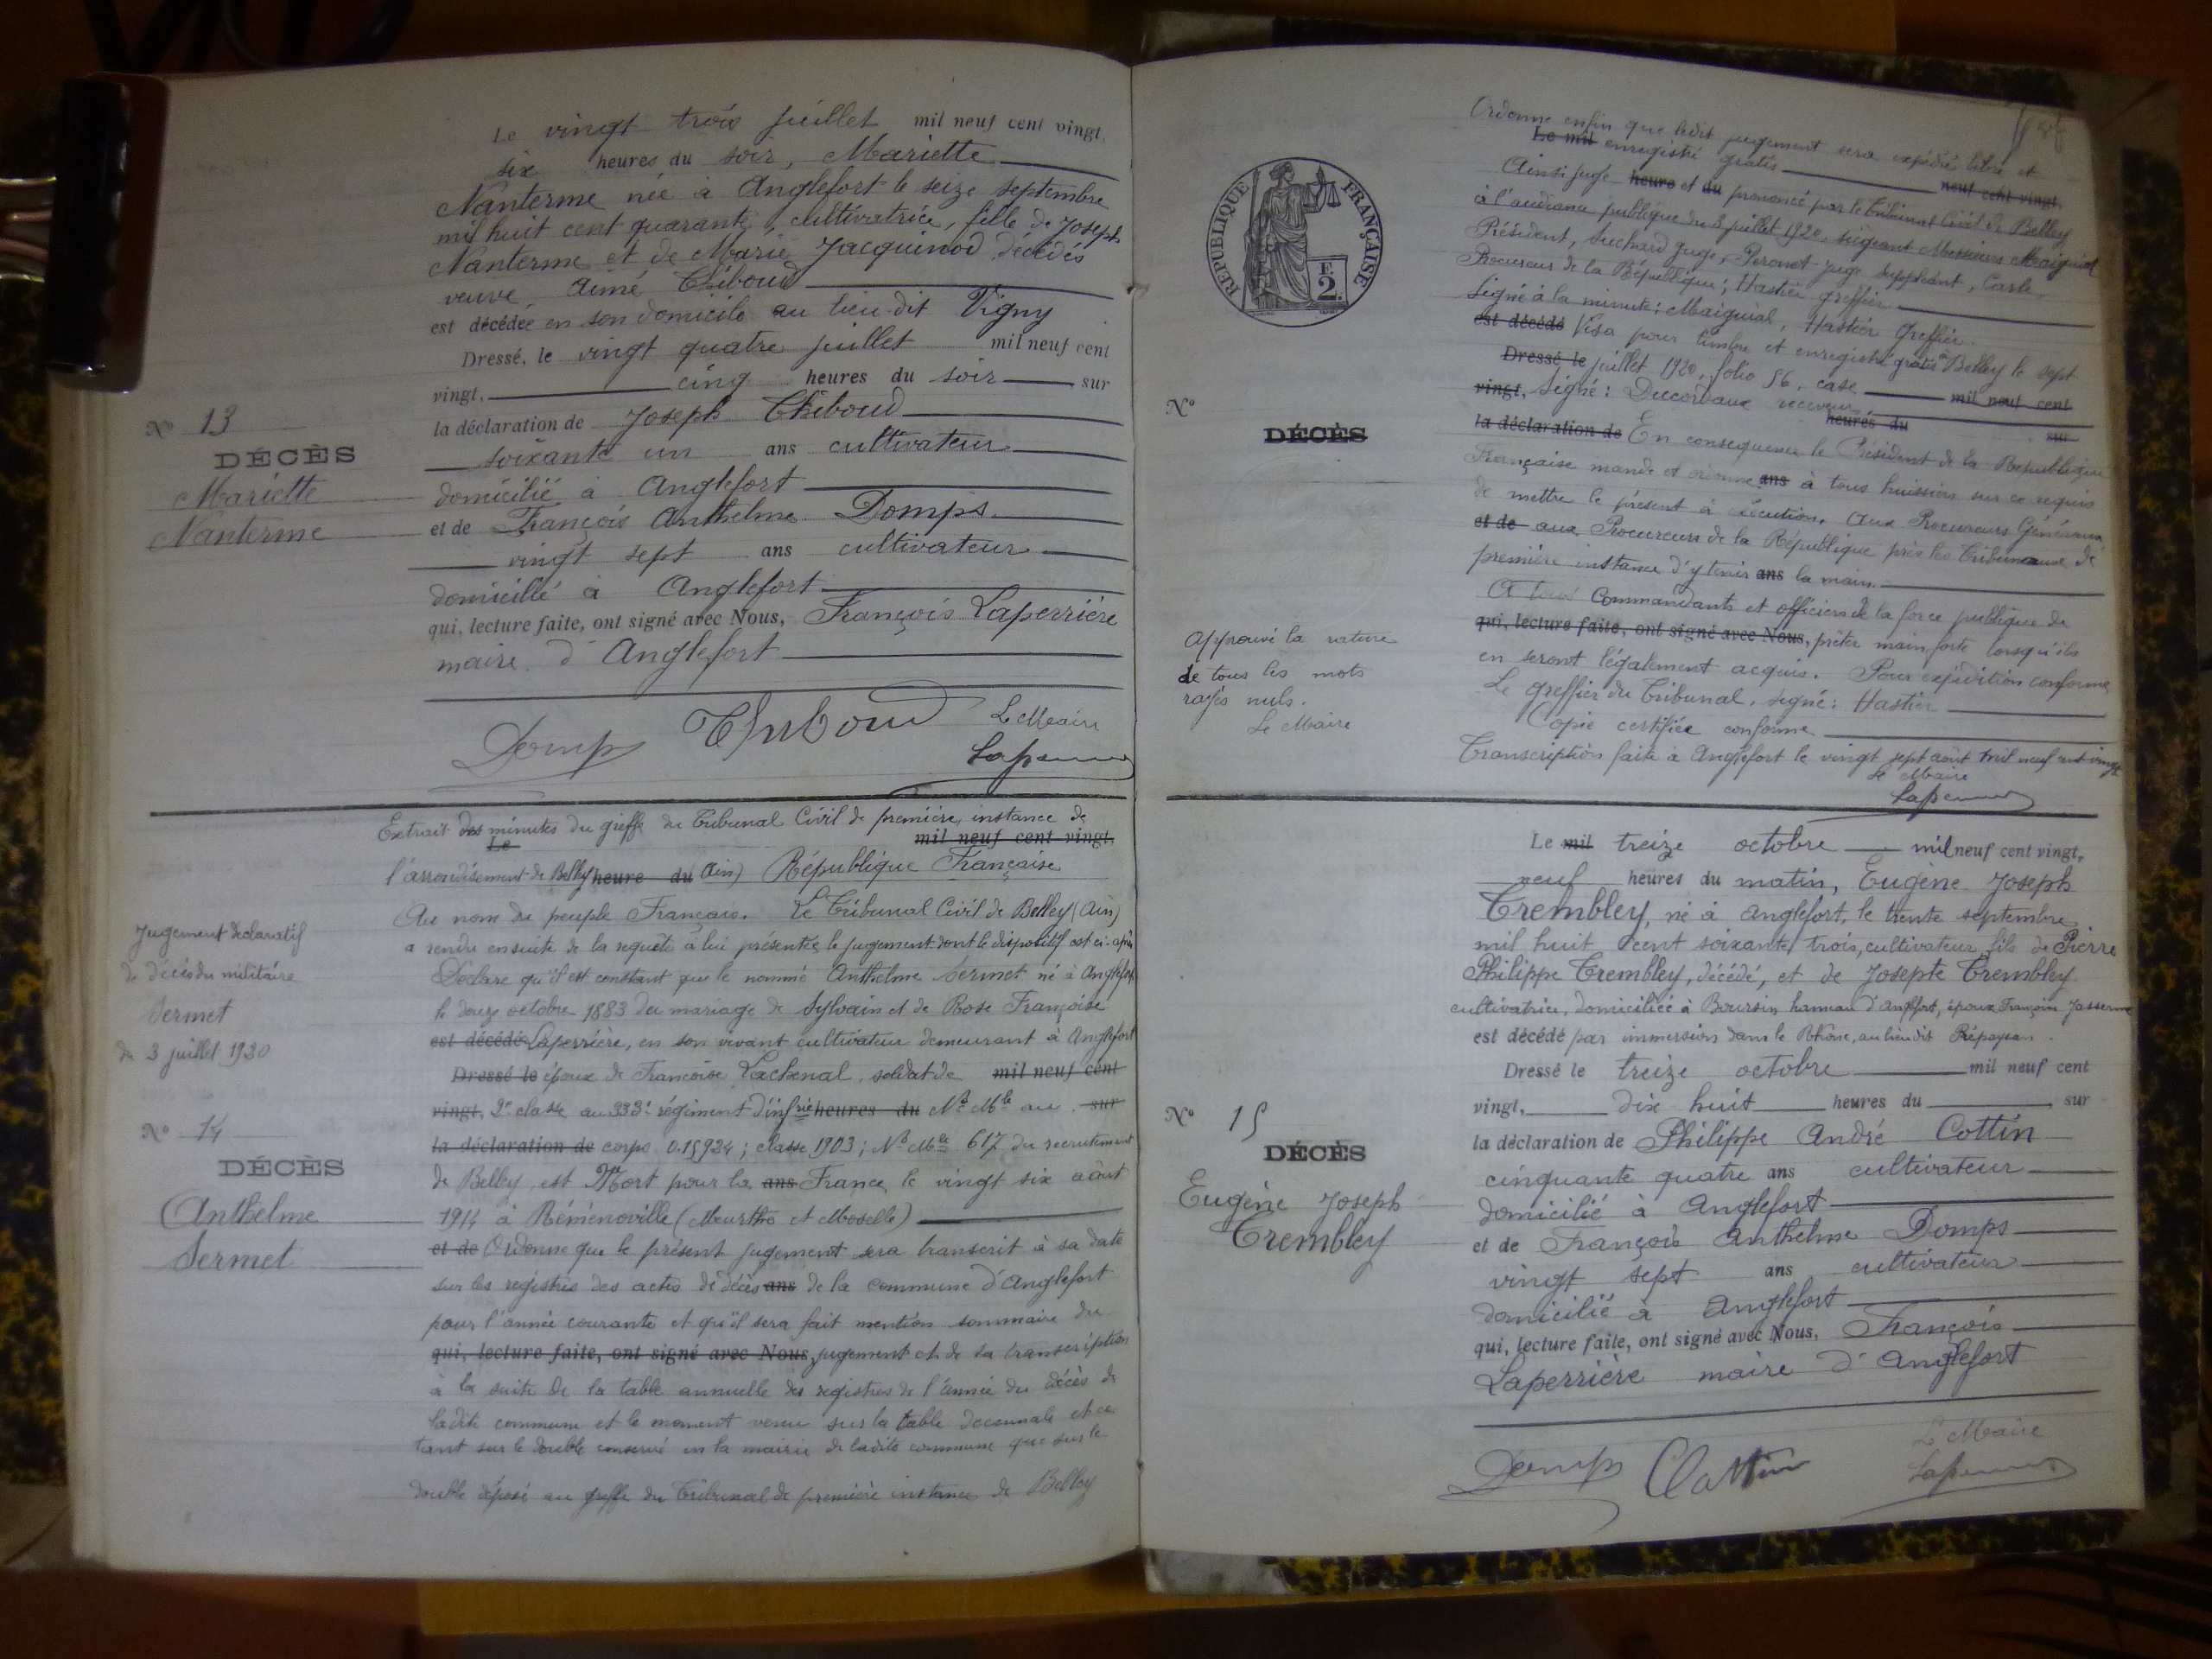 Le vingt trois juillet mil neuf cent vingt,
six heures du soir, Mariette
Nanterme née à Anglefort le seize septembre
mil huit cent quarante, cultivatrice, fille de Joseph
Nanterme et de Marie Jacquinod décédés
veuve Aimé Thiboud
est décédée en son domicile au lieu-dit Vigny
Dressé, le vingt quatre juillet mil neuf cent
vingt, cinq heures du soir sur
la déclaration de Joseph Thiboud
soixante un ans cultivateur
domicilié à Anglefort
et de François Anthelme Domps
vingt sept ans cultivateur
domicilié à Anglefort
qui, lecture faite, ont signé avec Nous, François Laperrière
maire d'Anglefort
Domps Thiboud Le Maire
N° 13
DÉCÈS
Mariette
Nanterme
Extrait des minutes du greffe du Tribunal Civil de première instance de
Le mil neuf cent vingt,
l'arrondissement de Belley heure du (Ain) République Française
Au nom du peuple Français. Le Tribunal Civil de Belley (Ain)
a rendu ensuite de la requête à lui présentée le jugement dont le dispositif est ci-après
Déclare qu'il est constant que le nommé Anthelme Sermet né à Anglefort
le douze octobre 1883 du mariage de Sylvain et de Rose Françoise
est décédé Laperrière, en son vivant cultivateur demeurant à Anglefort
Dressé le époux de Françoise Lachenal, soldat de mil neuf cent
vingt, 2e classe au 333e régiment d'infrie heures du N° Mle au sur
la déclaration de corps 0.15924; classe 1903; N° Mle 617 du recrutement
de Belley, est Mort pour la ans France le vingt six août
1914 à Réménoville (Meurthe et Moselle)
et de Ordonne que le présent jugement sera transcrit à sa date
sur les registres des actes de décès ans de la commune d'Anglefort
pour l'année courante et qu'il sera fait mention sommaire du
qui, lecture faite, ont signé avec Nous, jugement et de sa transcription
à la suite de la table annuelle des registres de l'année du décès de
ladite commune et le moment venu sur la table décennale et ce
tant sur le double conservé en la mairie de ladite commune que sur le
double déposé au greffe du Tribunal de première instance de Belley
Jugement déclaratif
de décès du militaire
Sermet
du 3 juillet 1920
N° 14
DÉCÈS
Anthelme
Sermet
RÉPUBLIQUE FRANÇAISE
E
2
Ordonne enfin que ledit jugement sera expédié libre et
Le mil enregistré gratis neuf cent vingt,
Ainsi jugé heure et du prononcé par le Tribunal Civil de Belley
à l'audience publique du 3 juillet 1920, siégeant Messieurs Maiguial
Président, Suchard juge, Peronet juge suppléant, Carle
Procureur de la République; Hastier greffier
Signé à la minute: Maiguial, Hastier Greffier.
est décédé Visa pour timbre et enregistré gratis à Belley le sept
Dressé le juillet 1920, folio 56, case mil neuf cent
vingt, Signé: Ducordaux receveur
heures du sur
la déclaration de En conséquence le Président de la République
Française mande et ordonne ans à tous huissiers sur ce requis
de mettre le présent à exécution. Aux Procureurs Généraux
et de aux Procureurs de la République près les Tribunaux de
première instance d'y tenir ans la main.
A tous Commandants et officiers de la force publique de
qui, lecture faite, ont signé avec Nous, prêter main forte lorsqu'ils
en seront légalement acquis. Pour expédition conforme
Le greffier du Tribunal, signé: Hastier
Copie certifiée conforme
Transcription faite à Anglefort le vingt sept août mil neuf cent vingt
Le Maire
N°
DÉCÈS
Approuvé la rature
de tous les mots
rayés nuls.
Le Maire
Le mil treize octobre mil neuf cent vingt,
neuf heures du matin, Eugène Joseph
Trembley, né à Anglefort, le trente septembre
mil huit cent soixante trois, cultivateur fils de Pierre
Philippe Trembley, décédé, et de Josepte Trembley
cultivatrice, domiciliée à Boursin hameau d'Anglefort, époux Françoise Jasserme
est décédé par immersion dans le Rhône, au lieu dit Prépaysan
Dressé le treize octobre mil neuf cent
vingt, dix huit heures du sur
la déclaration de Philippe André Cottin
cinquante quatre ans cultivateur
domicilié à Anglefort
et de François Anthelme Domps
vingt sept ans cultivateur
domicilié à Anglefort
qui, lecture faite, ont signé avec Nous, François
Laperrière maire d'Anglefort
Domps Cottin Le Maire
N° 15
DÉCÈS
Eugène Joseph
Trembley